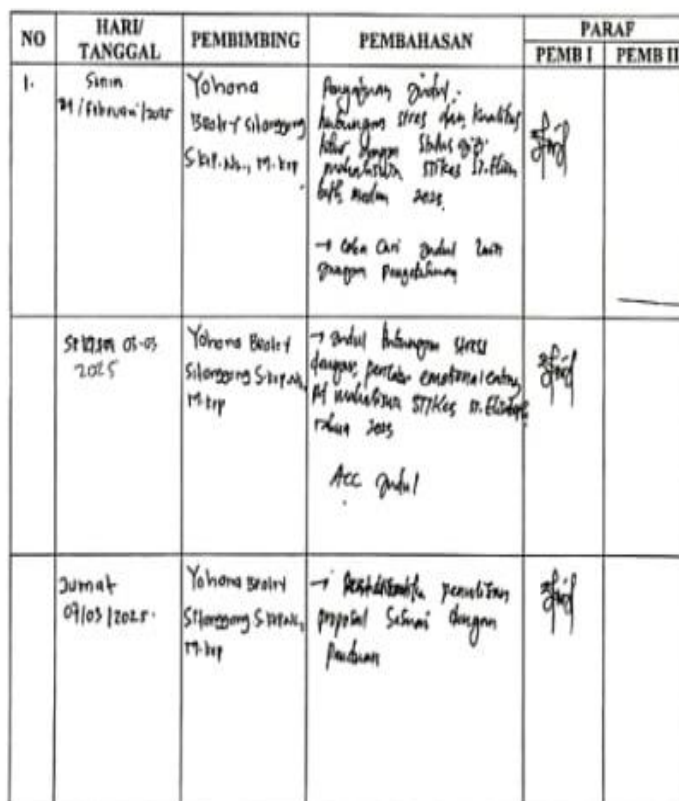 NO HARI/ TANGGAL PEMBIMBING PEMBAHASAN PARAF
PEMB I PEMB II
1.
Senin
/februari/2025
Yohana
Silanggang
S.Kep.Ns., M.Kep
Pengajuan judul:
hubungan stres dan kualitas
tidur dengan status gizi
mahasiswa STIKes St. Eliza
beth medan 2025
→ coba cari judul lain
dengan
Selasa 03-03
2025
Yohana
Silanggang S.Kep.Ns.,
M.Kep
→ judul hubungan stress
dengan emotional eating
mahasiswa STIKes St. Elizabeth
tahun 2025
Acc judul
Jumat
07/03/2025.
Yohana
Silanggang S.Kep.Ns.,
M.Kep
→ penulisan
proposal sesuai dengan
panduan